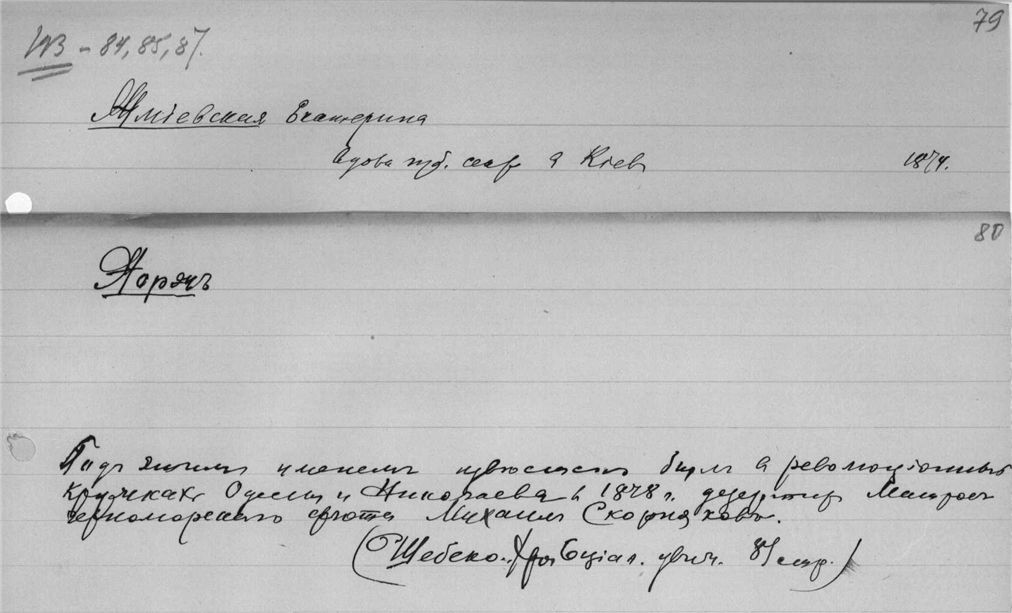 79
NB - 84, 85, 87.
Жмiевская Екатерина
Вдова губ. секр в Кiевѣ 1874.
80
Жоржъ
Подъ этимъ именемъ извѣстенъ былъ в революцiонныхъ
кружкахъ Одессы и Николаева в 1878 г. дезертир матросъ
черноморскаго флота Михаилъ Скорняковъ.
(Шебеко. Хрон соцiал. движ. 81 стр.)